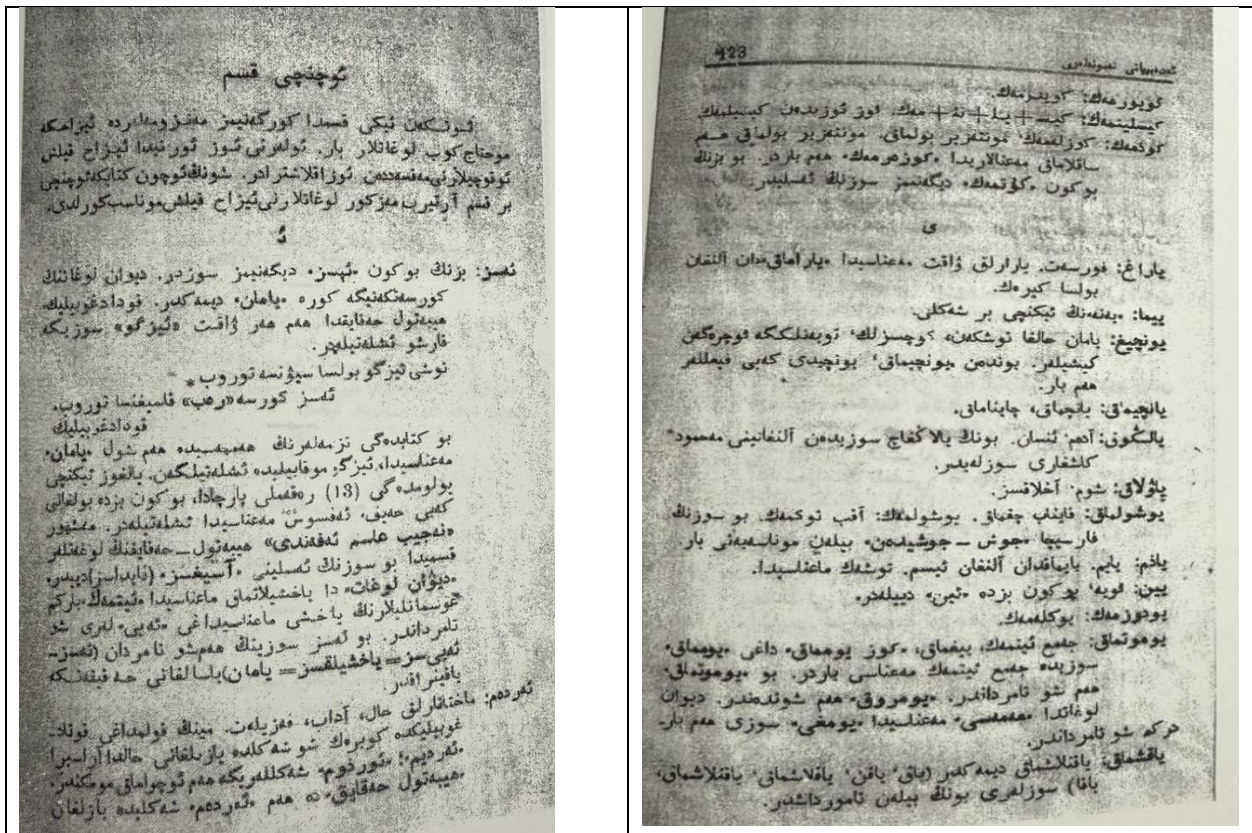 ئوچنچى قسم
ئـوتـكەن ئيكى قسمدا كورگەنيمز مەنزومەلەردە ئيزاهـكە
موحتاج كوب لوغاتلار بار. ئولەرنى ئـوز ئورنيدا ئيزاح قيلش
ئوقوچيلارنى مەقسەددەن ئوزاقلاشترادر. شونىڭ ئوچون كتابكە ئوچنچى
بر قسم آرتيرب مەزكور لوغاتلارنى ئيزاح قيلش موناسب كورلدى.
ئ
ئەسز: بزنڭ بوكون «ئيسز» ديگەنيمز سوزدر. ديوان لوغاتنڭ
كورسەتكەنيگە كورە «يامان» ديمەكدر. قودادغوبيليك،
هيبەتول حەقايقدا هەم هەر ۋاقت «ئيزگو» سوزيگە
قارشو ئشلەتيلەدر.
توشى ئيزگو بولسا سيۋنسە توروب *
ئەسز كورسە «رەب» قاسيغنسا توروب.
قودادغوبيليك
بو كتابدەگى نزمەلەرنڭ هەممەسيدە هەم شول «يامان»
مەعناسيدا، ئيزگو موقابيليدە ئشلەتيلگەن. يالغوز ئيكنچى
بولومدەگى (13) رەقەملى پارچادا، بوكون بزدە بولغانى
كەبى حەيف، ئەفسوس مەعناسيدا ئشلەتيلەدر. مەشهور
«نەجيب عاسم ئەفەندى» هيبەتول ــ حەقايقنڭ لوغەتلەر
قسميدا بو سوزنڭ ئەسلينى «آسيغسز» (فايداسز) دييدر.
«ديۋان لوغات» دا ياخشيلاتماق ماعناسيدا «ئيتمەك» باركم
عوسمانليلارنڭ ياخشى ماعناسيداغى «ئەيى» لەرى شو
تامرداندر. بو ئەسز سوزينڭ هەم شو تامردان (ئەسز ــ
ئەيى سز = ياخشيلقسز = يامان) ياسالغانى حەقيقەتـكە
ياقنراقدر.
ئەردەم: ماختانارلق حال، آداب، فەزيلەت. مينڭ قولمداغى قوتادــ
غوبيليكدە كوبرەك شو شەكلدە يازيلغانى حالدا آراسيرا
«ئەرديم»؛ «ئوردوم» شەكللەريگە هەم ئوچراماق مومكندر.
«هيبەتول حەقايق» دە هەم «ئەردەم» شەكليدە يازلغان
423
ئەدەبيياتى نەمونەلەرى
كويوزمەك: كويدرمەك.
كيسليتمەك: كيس + يل + تە + مەك. ئوز ئوزيدەن كيسيلمەك.
كوتمەك: كوزلەمەك، مونتەزير بولماق. مونتەزير بولماق هـم
ساقلاماق مەعنالاريدا «كوزەرمەك» هەم باردر. بو بزنڭ
بوكون «كۇتمەك» ديگەنيمز سوزنڭ ئەسليدر.
ى
ياراغ: فورسەت. يارارلق ۋاقت مەعناسيدا «ياراماق» دان آلنغان
بولسا كيرەك.
ييما: «يەنە»نڭ ئيكنچى بر شەكلى.
يونچيغ: يامان حالغا توشكەن، كوچسزلك، توبەنلككە ئوچرەگەن
كيشيلەر. بوندەن «يونچيماق»، يونچيدى كەبى فيعللەر
هەم بار.
يانچيماق: يانچماق، چايناماق.
يالڭوق: آدەم، ئنسان. بونڭ يالاڭغاچ سوزيدەن آلنغانينى مەحمود
كاشغارى سوزلەيدر.
ياۋلاق: شوم، آخلاقسز.
يوشولماق: قايناب چقماق. يوشولمەك: آقب توكمەك. بو سوزنڭ
فارسيچا «جوش ــ جوشيدەن» بيلەن موناسەبەتى بار.
ياذم: يايم. يايماقدان آلنغان ئيسم. توشەك ماعناسيدا.
يين: قويە، بوكون بزدە «ئين» دييلەدر.
يودوزمەك: يوكلەمەك.
يوموتماق: جەمع ئيتمەك، ييغماق، «كوز يومماق» داغى «يومماق»
سوزيدە جەمع ئيتمەك مەعناسى باردر. بو «يوموتماق»
هەم شو تامرداندر. «يومروق» هەم شوندەندر. ديوان
لوغاتدا «هەممەسى» مەعناسيدا «يومغى» سوزى هەم بارــ
دركە شو تامرداندر.
ياقشماق: ياقنلاشماق ديمەكدر (ياق، ياقن، ياقلاشماق، ياقنلاشماق،
ياقا) سوزلەرى بونڭ بيلەن تامورداشدر.